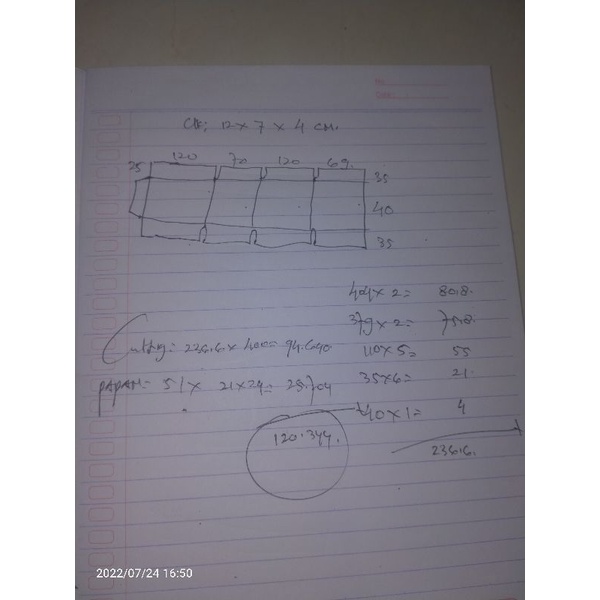 12 x 7 x 4 CM.
120 70 120 69.
25 35
40
35
404 x 2 = 80.8.
379 x 2 = 75.8.
Cutting: 236.6 x 400 = 94.640
110 x 5 = 55
PAPAN = 51 x 21 x 24 = 25.704
35 x 6 = 21.
40 x 1 = 4
120.344.
236.6.
2022/07/24 16:50